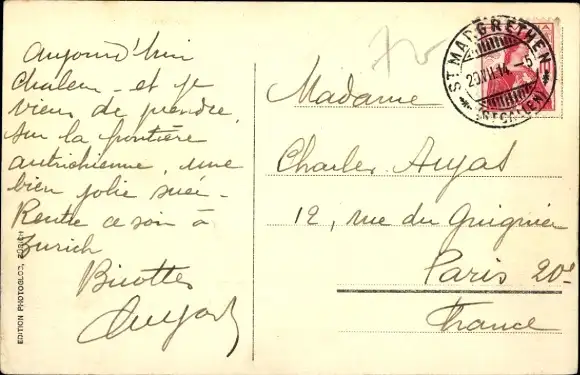 Aujourd'hui
chaleur - et je
viens de prendre,
sur la frontière
autrichienne, une
bien jolie suée.
Rentre ce soir à
Zurich
Bicottes
Madame
Charles
12, rue du Guignier
Paris 20e
France
ST MARGRETHEN
20.VII.14.-5
(ST.GALLEN)
EDITION PHOTOGLOB, ZÜRICH